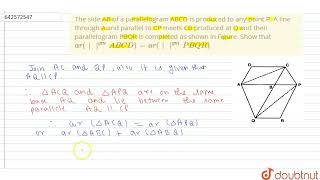 642572547
The side AB of a parallelogram ABCD is produced to any point P. A line
through A and parallel to CP meets CB produced at Q and then
parallelogram PBQR is completed as shown in Figure. Show that
ar(||gm ABCD) = ar(||gm PBQR)
Join AC and QP, also it is given that
AQ || CP
∴ △ACQ and △APQ are on the same
base AQ and lie between the same
parallels AQ || CP.
∴ ar (△ACQ) = ar (△APQ)
or ar (△ABC) + ar (△ABQ)
doubtnut